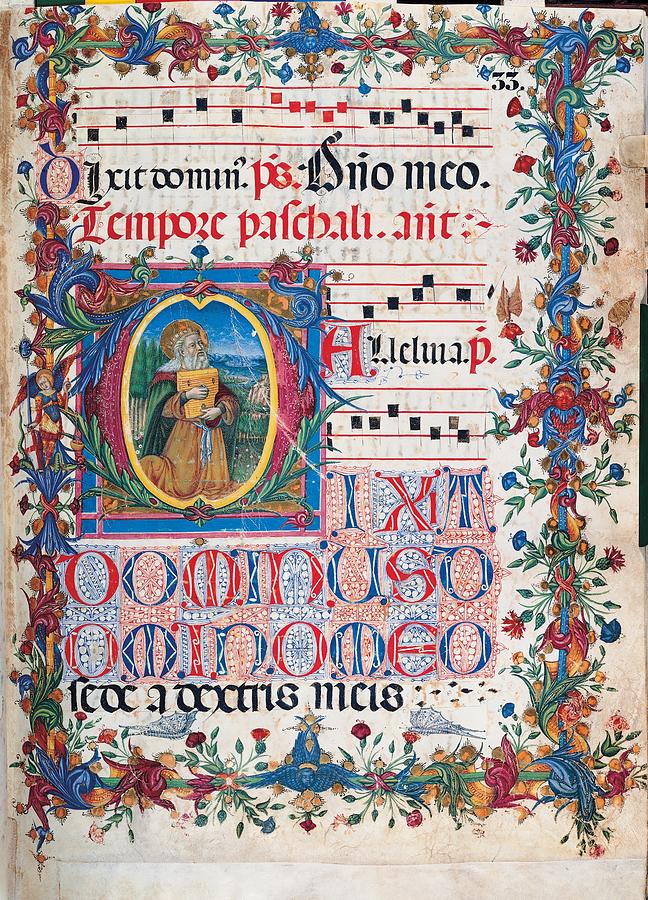 33.
Dixit domin̄. p̄s. Dn̄o meo.
Tempore paschali. an̄t :-
Alleluia. p̄.
DIXIT
DOMINUS D
OMINO MEO
sede a dextris meis :